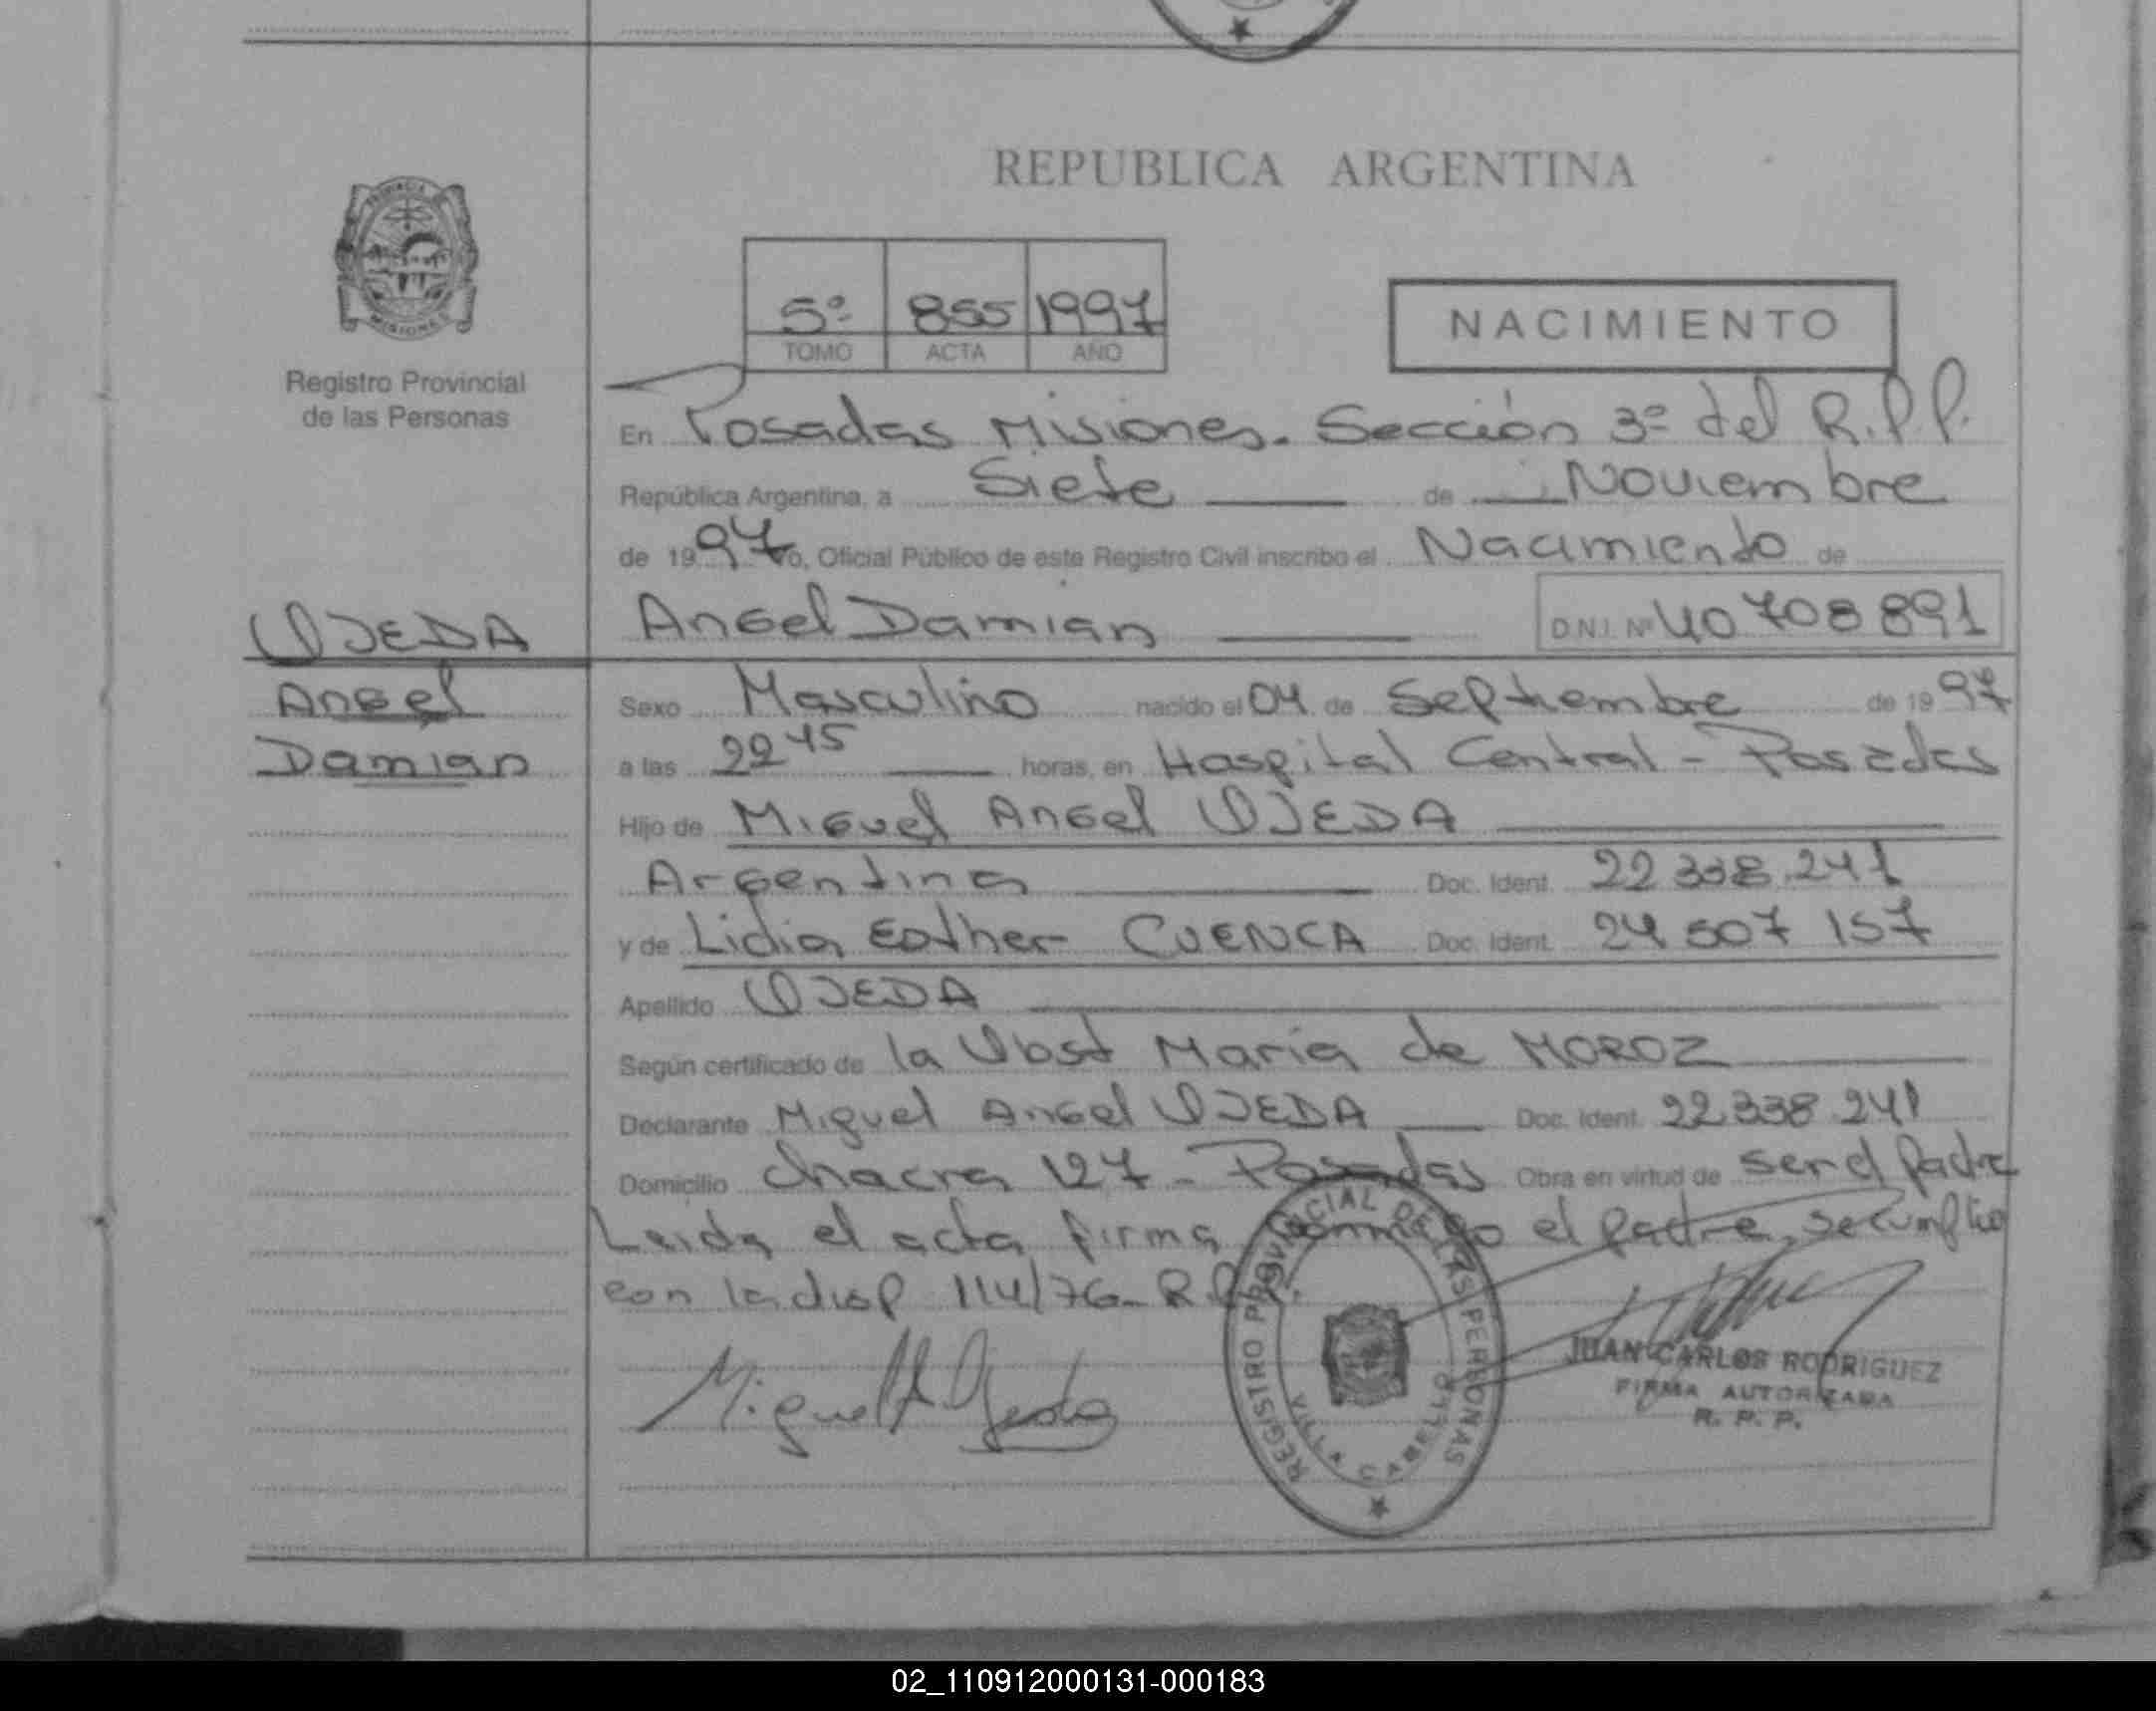 REPUBLICA ARGENTINA
PROVINCIA
MISIONES
Registro Provincial
de las Personas
5º 855 1997
TOMO ACTA AÑO
NACIMIENTO
En Posadas Misiones. Sección 3º del R.P.P.
República Argentina, a Siete de Noviembre
de 1997 Yo, Oficial Público de este Registro Civil inscribo el Nacimiento de
OJEDA Angel Damian D.N.I. Nº 40 708 891
Angel
Damian
Sexo Masculino nacido el 04 de Septiembre de 1997
a las 22 45 horas, en Hospital Central - Posadas
Hijo de Miguel Angel OJEDA
Argentina Doc. Ident. 22 338 241
y de Lidia Esther CUENCA Doc. Ident. 24 507 157
Apellido OJEDA
Según certificado de la Obst Maria de MOROZ
Declarante Miguel Angel OJEDA Doc. Ident. 22 338 241
Domicilio Chacra 127 - Posadas Obra en virtud de ser el padre
Leida el acta firma conmigo el padre, se cumplio
con la disp 114/76 - R.P.P.
Miguel A Ojeda
REGISTRO PROVINCIAL DE LAS PERSONAS
VILLA CABELLO
JUAN CARLOS RODRIGUEZ
FIRMA AUTORIZADA
R. P. P.
02_110912000131-000183